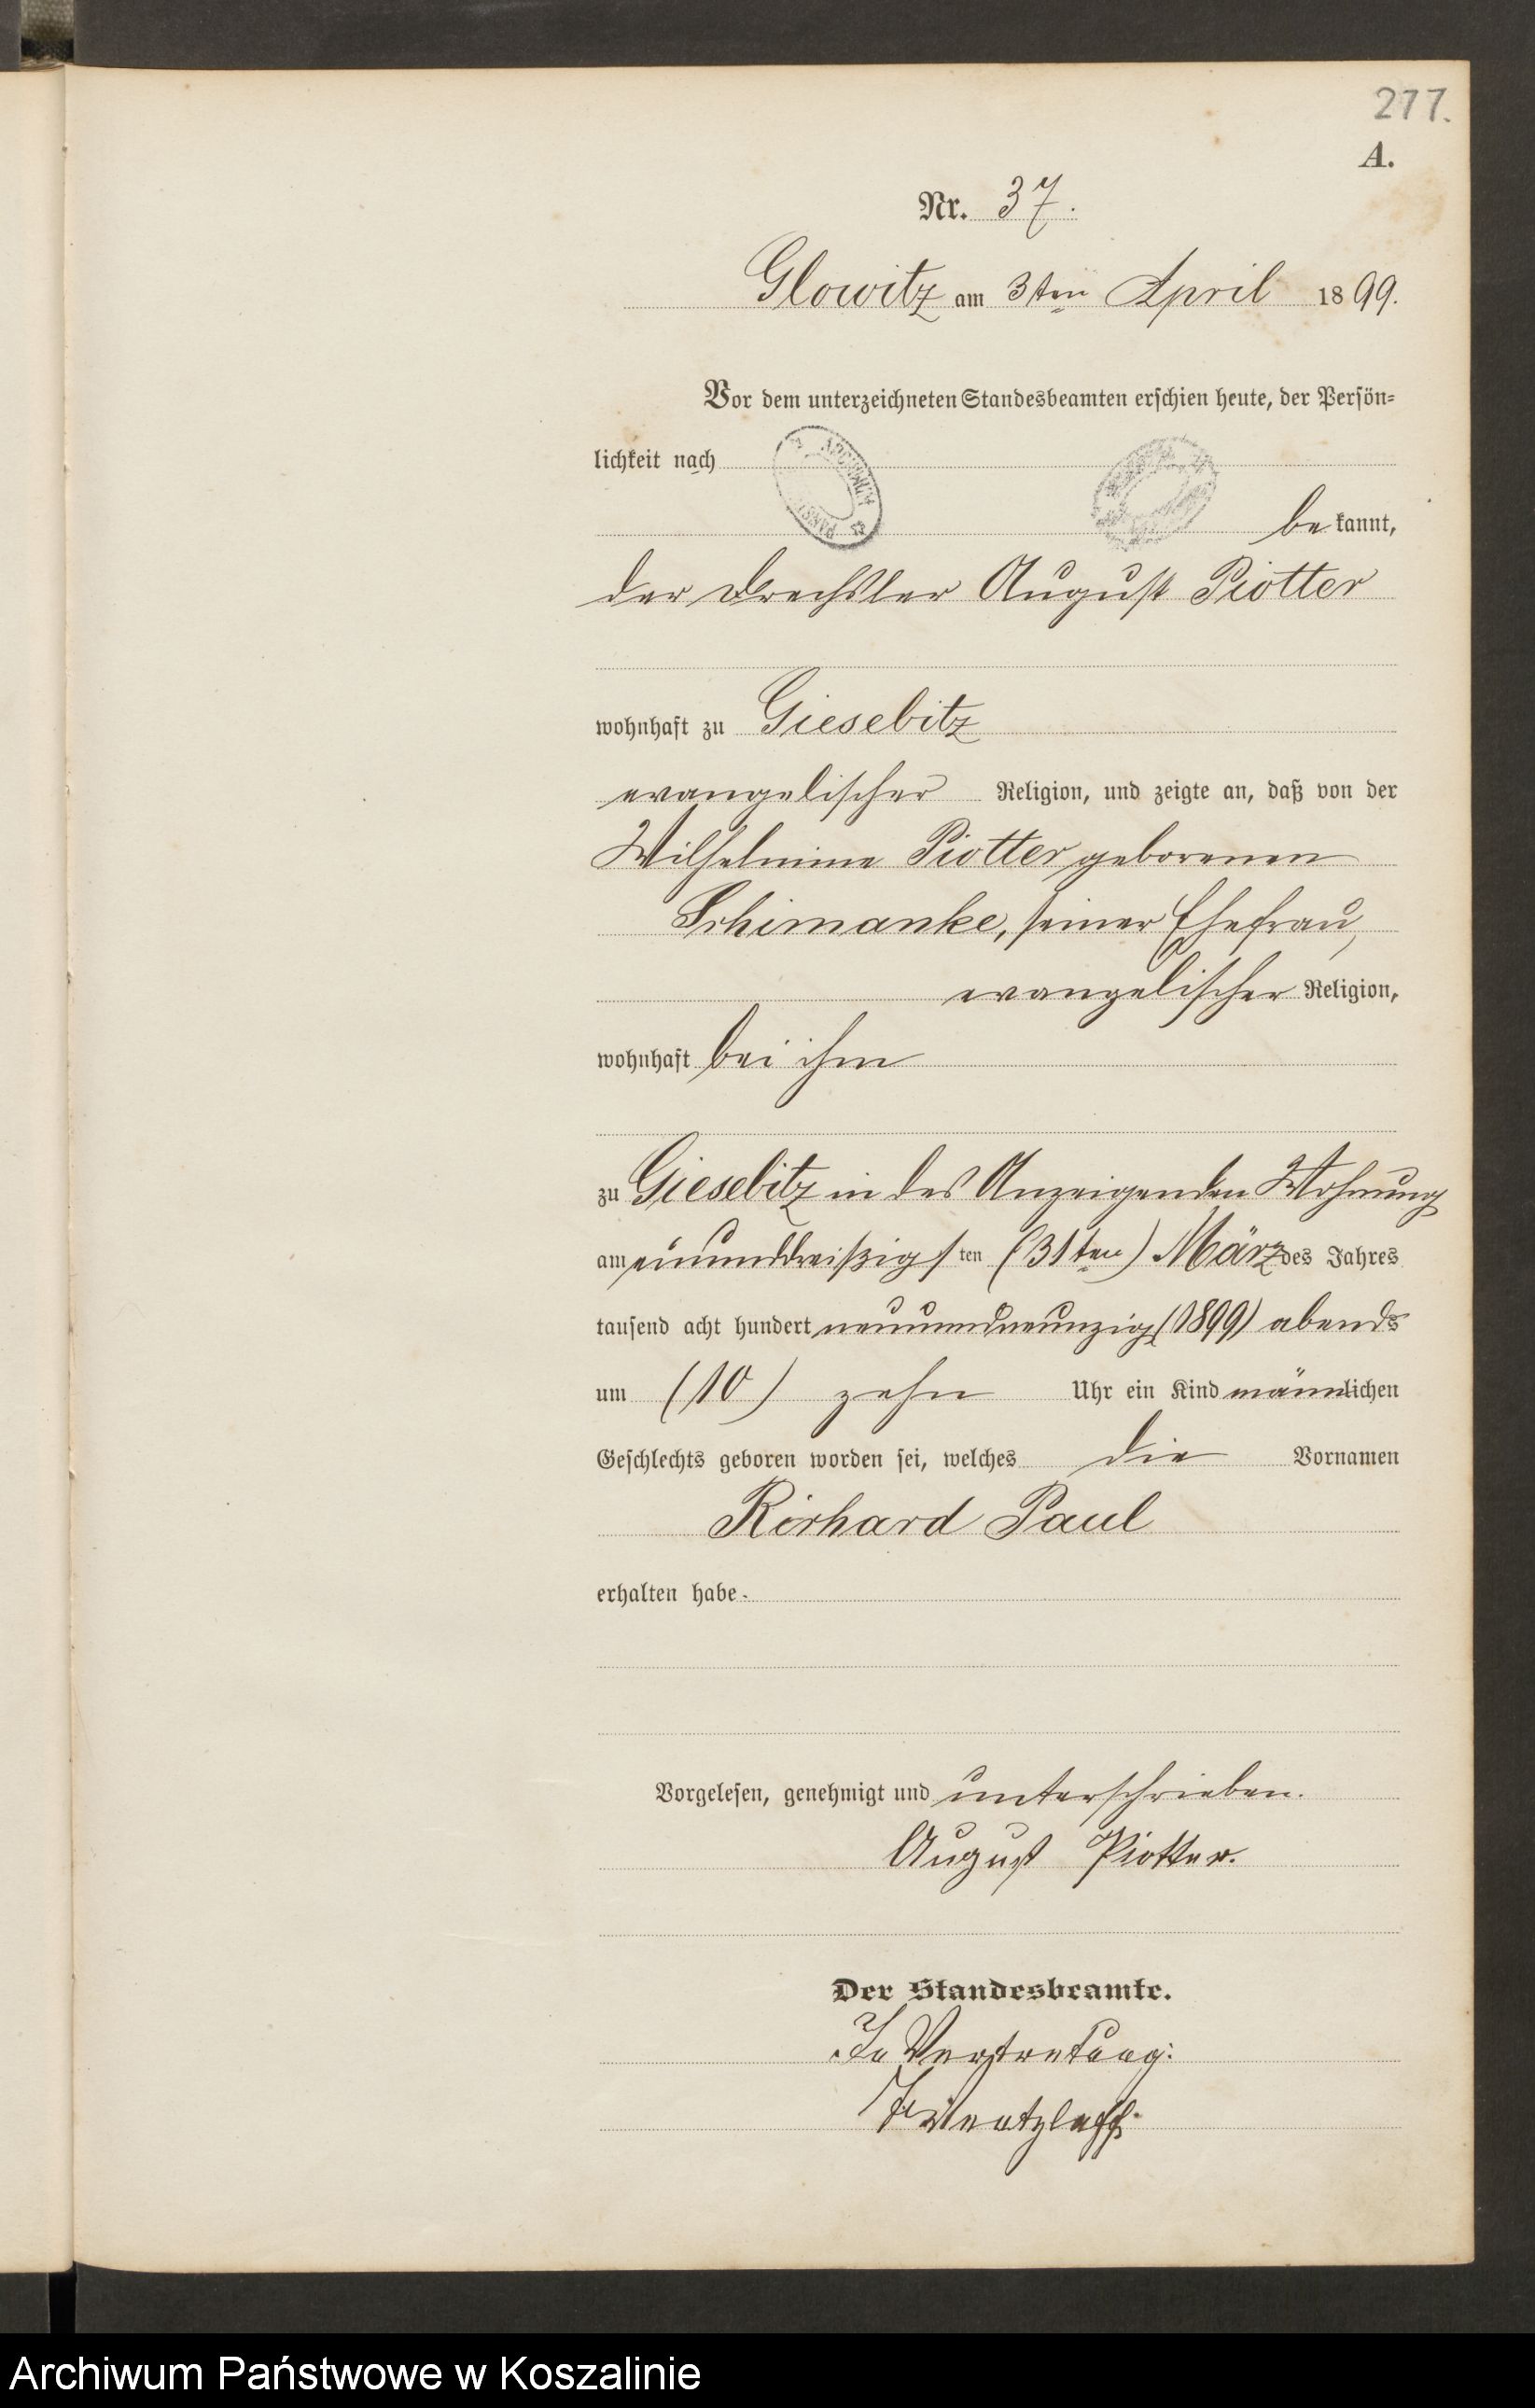 277.
A.
Nr. 37.
Glowitz am 3ten April 1899.
Vor dem unterzeichneten Standesbeamten erschien heute, der Persön=
lichkeit nach
ARCHIWUM
PAŃST
be kannt,
der Drechsler August Piotter
wohnhaft zu Giesebitz
evangelischer Religion, und zeigte an, daß von der
Wilhelmine Piotter geborenen
Schimanke, seiner Ehefrau,
evangelischer Religion,
wohnhaft bei ihm
zu Giesebitz in des Anzeigenden Wohnung
am einunddreißigsten (31ten) März des Jahres
tausend acht hundert neunundneunzig (1899) abends
um (10) zehn Uhr ein Kind männlichen
Geschlechts geboren worden sei, welches die Vornamen
Richard Paul
erhalten habe.
Vorgelesen, genehmigt und unterschrieben.
August Piotter.
Der Standesbeamte.
In Vertretung:
Archiwum Państwowe w Koszalinie